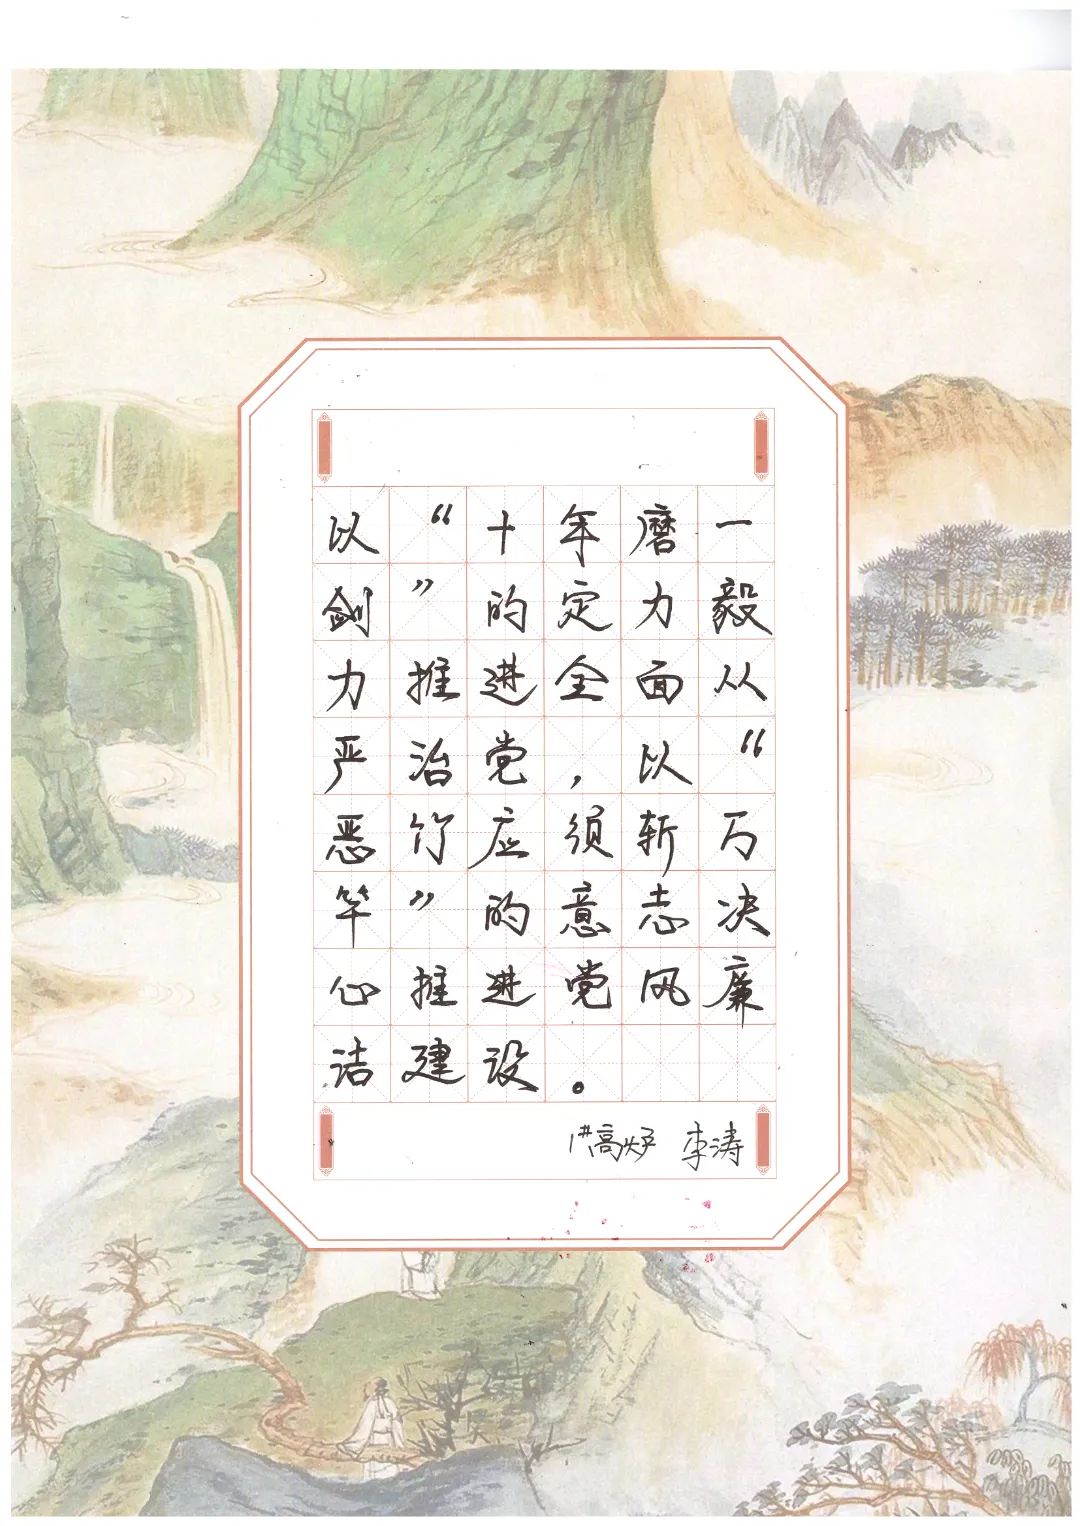 以“十年磨一
剑”的定力毅
力推进全面从
严治党，以“
恶竹应须斩万
竿”的意志决
心推进党风廉
洁建设。
1#高炉 李涛